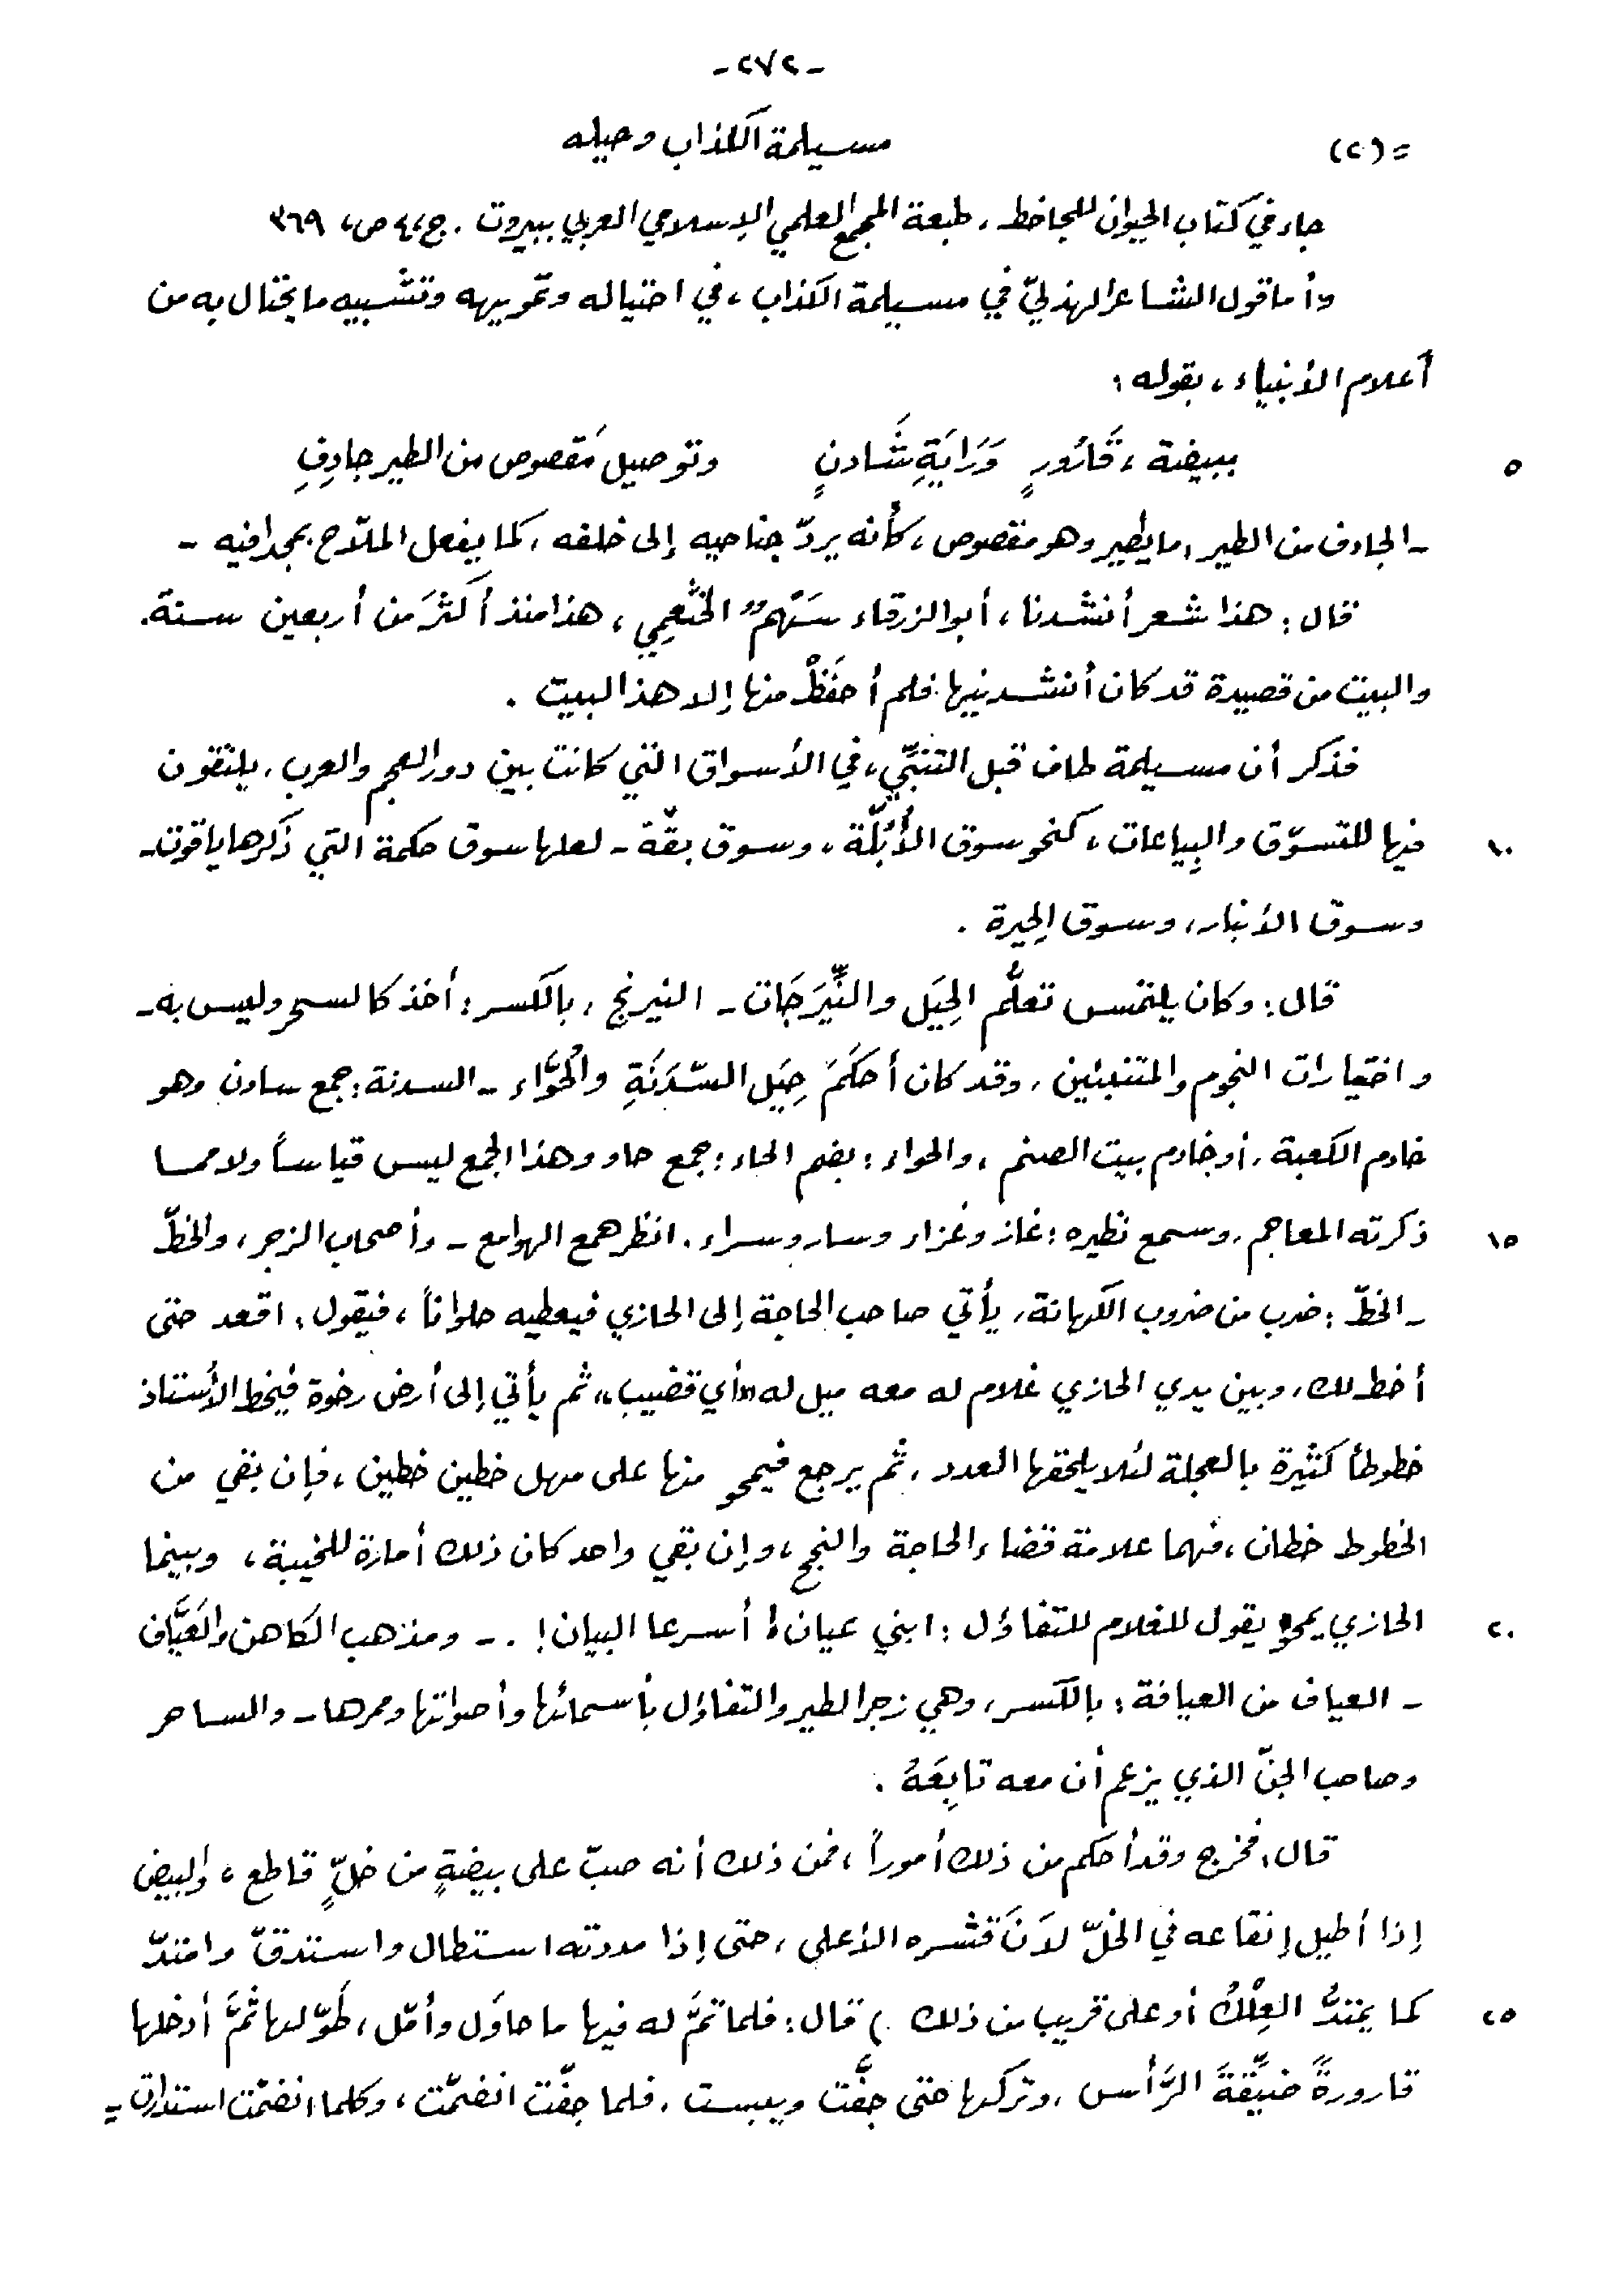 -٢٧٢-
=(٢) مسيلمة الكذاب وحيله
جاء في كتاب الحيوان للجاحظ، طبعة المجمع العلمي الإسلامي العربي ببيروت. ج،٤ ص، ٣٦٩
وأما قول الشاعر الهذليّ في مسيلمة الكذاب، في احتياله وتمويهه وتشبيه ما يحتال به من
أعلام الأنبياء، بقوله:
ببيضة، قَارُورٍ وَرَايَةِ شَادنٍ وتوصيل مَقصوص من الطير جادِفِ ٥
ـ الجادف من الطير، ما يطير وهو مقصوص، كأنه يردّ جناحيه إلى خلفه، كما يفعل الملّاح بمجدافيه ـ
قال: هذا شعر أنشدنا، أبو الزرقاء سَهْمٌ الخثعمِي، هذا منذ أكثرَ من أربعين سنة.
والبيت من قصيدة قد كان أنشدنيها فلم أحفَظْ منها إلا هذا البيت.
فذكر أن مسيلمة طاف قبل التنبِّي، في الأسواق التي كانت بين دور العجم والعرب، يلتقون
فيها للتسوّق والبِياعات، كنحو سوق الأُبُلّة، وسوق بقّة ـ لعلها سوق حكمة التي ذكرها ياقوت ـ ١٠
وسوق الأنبار، وسوق الحِيرة.
قال: وكان يلتمس تعلُّم الحِيَل والنِّيَرَجَات ـ النيرنج، بالكسر: أخذ كالسحر وليس به ـ
واختيارات النجوم والمتنبئين، وقد كان أحكَمَ حِيَل السّدَنَةِ والحُوَّاء ـ السدنة: جمع سادن وهو
خادم الكعبة، أو خادم بيت الصنم، والحواء: بضم الحاء: جمع حاو وهذا الجمع ليس قياساً ولا مما
ذكرته المعاجم، وسمع نظيره: غاز وغزاء وسار وسراء. انظر همع الهوامع ـ وأصحاب الزجر، والخطّ ١٥
ـ الخطّ: ضرب من ضروب الكهانة، يأتي صاحب الحاجة إلى الحازي فيعطيه حلواناً، فيقول: اقعد حتى
أخط لك، وبين يدي الحازي غلام له معه ميل له «أي قضيب» ثم يأتي إلى أرض رخوة فيخط الأستاذ
خطوطاً كثيرة بالعجلة لئلا يلحقها العدد، ثم يرجع فيمحو منها على مهل خطين خطين، فإن بقي من
الخطوط خطان، فهما علامة قضاء الحاجة والنجح، وإن بقي واحد كان ذلك أمارة للخيبة، وبينما
الحازي يمحو يقول للغلام للتفاؤل: ابني عيان! أسرعا البيان! ـ ومذهب الكاهن والعَيَّاف ٢٠
ـ العياف من العيافة: بالكسر، وهي زجر الطير والتفاؤل بأسمائها وأصواتها وممرها ـ والساحر
وصاحب الجنّ الذي يزعم أن معه تابِعَهُ.
قال: فخرج وقد أحكم من ذلك أموراً، فمن ذلك أنه صبّ على بيضةٍ من خلٍّ قاطع، والبيض
إذا أطيل إنقاعه في الخلّ لاَنَ قشره الأعلى، حتى إذا مددته استطال واستدقّ وامتدّ
كما يمتدُّ العِلْكُ أو على قريب من ذلك ) قال: فلما تمَّ له فيها ما حاوَل وأمّل، طَوّلها ثمَّ أدخلها ٢٥
قارورةً ضيِّقةَ الرَّأس، وتركها حتى جفَّت ويبست. فلما جفّت انضمّت، وكلما انضمّت استدارت =